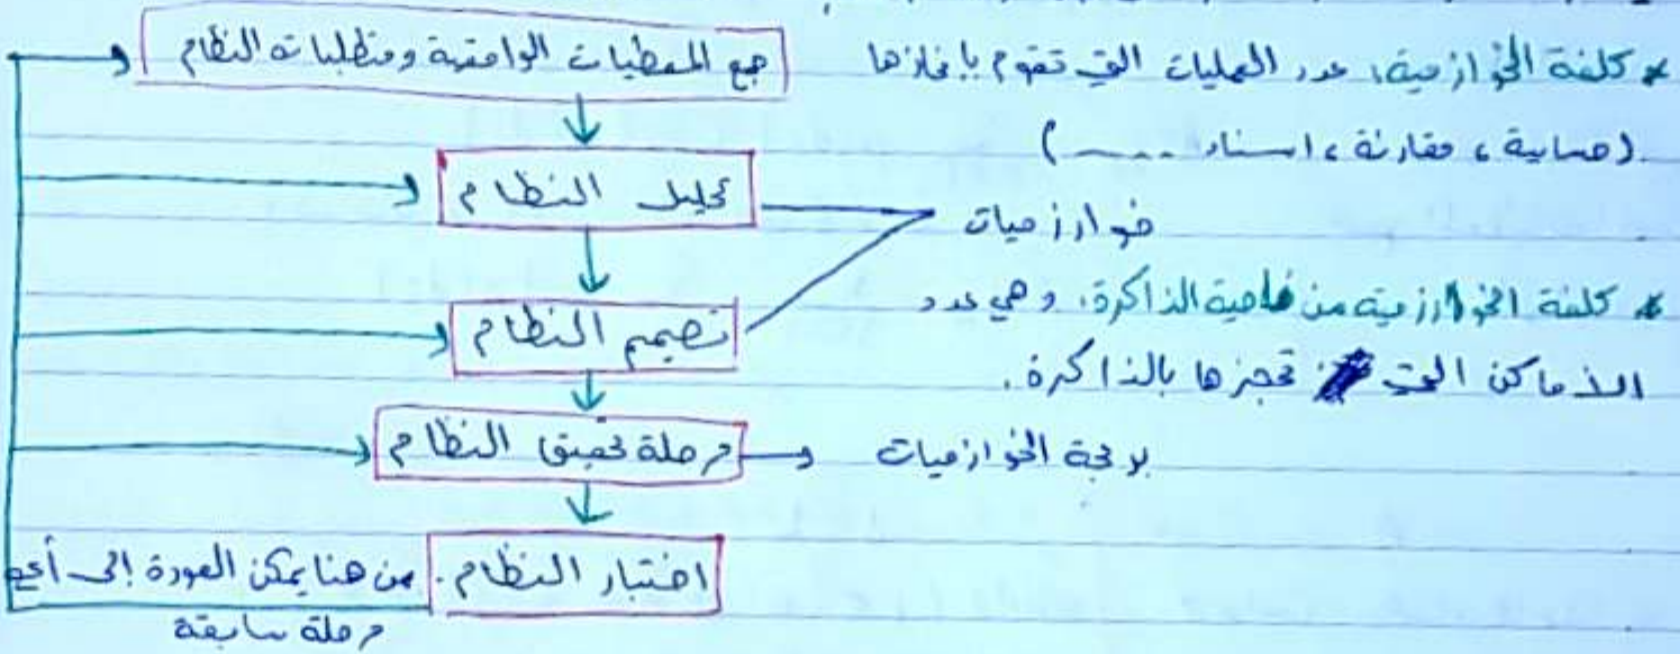 * كلفة الخوارزمية: عدد العمليات التي تقوم بإنجازها
(حسابية ، مقارنة ، اسناد ......)
خوارزميات
* كلفة الخوارزمية من ناحية الذاكرة: وهي عدد
الأماكن التي تحجزها بالذاكرة.
برمجة الخوارزميات
جمع المعطيات الواقعية ومتطلبات النظام
تحليل النظام
تصميم النظام
مرحلة تحقيق النظام
اختبار النظام.
من هنا يمكن العودة إلى أي
مرحلة سابقة